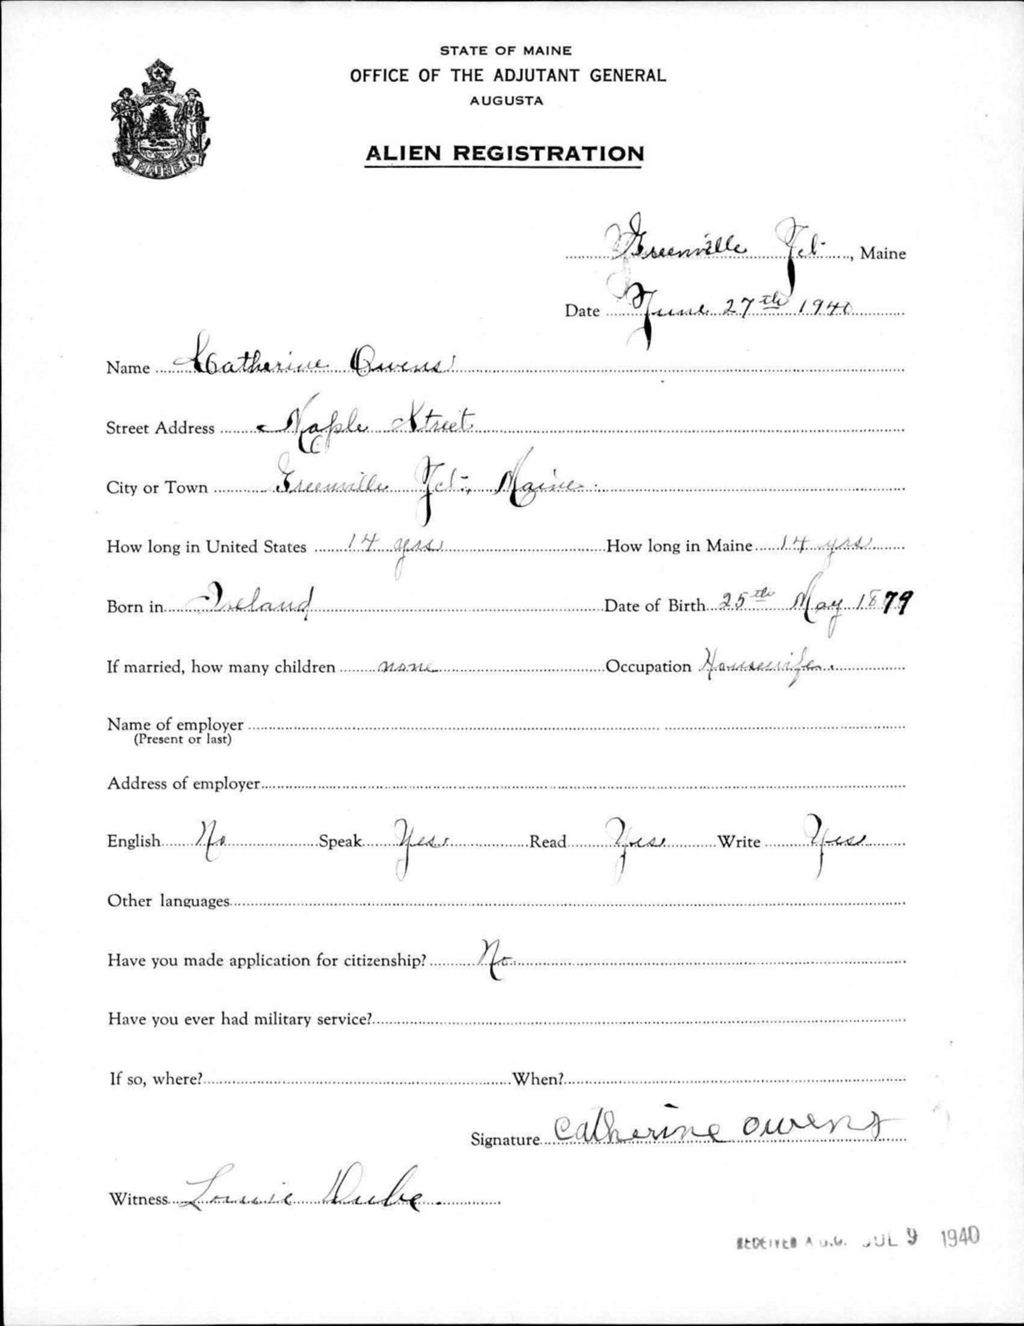 STATE OF MAINE
OFFICE OF THE ADJUTANT GENERAL
AUGUSTA
ALIEN REGISTRATION
Greenville Jct., Maine
Date June 27th 1940
Name Catherine Owens
Street Address Maple Street
City or Town Greenville Jct., Maine.
How long in United States 14 yrs How long in Maine 14 yrs
Born in Ireland Date of Birth 25th May 1879
If married, how many children none Occupation Housewife.
Name of employer
(Present or last)
Address of employer
English No Speak Yes Read Yes Write Yes
Other languages
Have you made application for citizenship? No
Have you ever had military service?
If so, where? When?
Signature Catherine Owens
Witness Louie Dube.
RECEIVED A.G.O. JUL 9 1940
MAINE